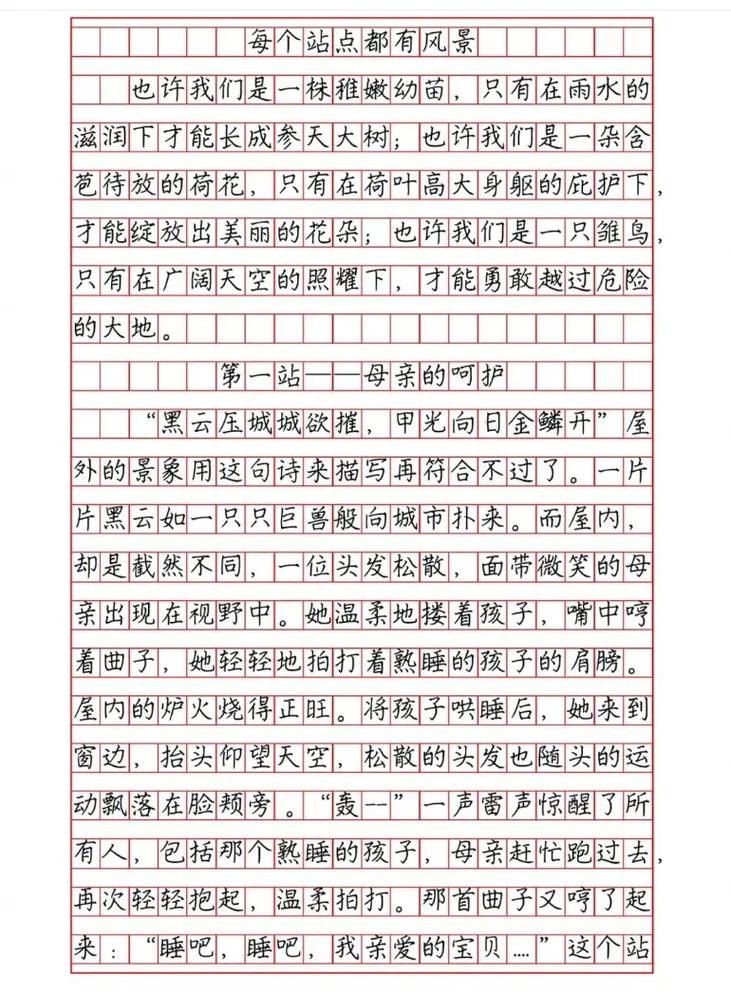 每个站点都有风景
也许我们是一株稚嫩幼苗，只有在雨水的
滋润下才能长成参天大树；也许我们是一朵含
苞待放的荷花，只有在荷叶高大身躯的庇护下，
才能绽放出美丽的花朵；也许我们是一只雏鸟，
只有在广阔天空的照耀下，才能勇敢越过危险
的大地。
第一站——母亲的呵护
“黑云压城城欲摧，甲光向日金鳞开”屋
外的景象用这句诗来描写再符合不过了。一片
片黑云如一只只巨兽般向城市扑来。而屋内，
却是截然不同，一位头发松散，面带微笑的母
亲出现在视野中。她温柔地搂着孩子，嘴中哼
着曲子，她轻轻地拍打着熟睡的孩子的肩膀。
屋内的炉火烧得正旺。将孩子哄睡后，她来到
窗边，抬头仰望天空，松散的头发也随头的运
动飘落在脸颊旁。“轰——”一声雷声惊醒了所
有人，包括那个熟睡的孩子，母亲赶忙跑过去，
再次轻轻抱起，温柔拍打。那首曲子又哼了起
来：“睡吧，睡吧，我亲爱的宝贝....”这个站